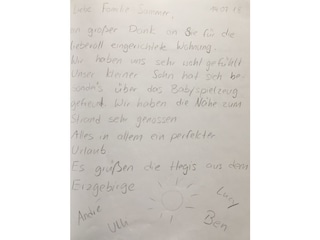 Liebe Familie Sommer,
ein großer Dank an Sie für die
liebevoll eingerichtete Wohnung.
Wir haben uns sehr wohl gefühlt
Unser kleiner Sohn hat sich be-
sonders über das Babyspielzeug
gefreut. Wir haben die Nähe zum
Strand sehr genossen
Alles in allem ein perfekter
Urlaub
Es grüßen die Hegis aus dem
Erzgebirge
Lucy
André
Ulli
Ben